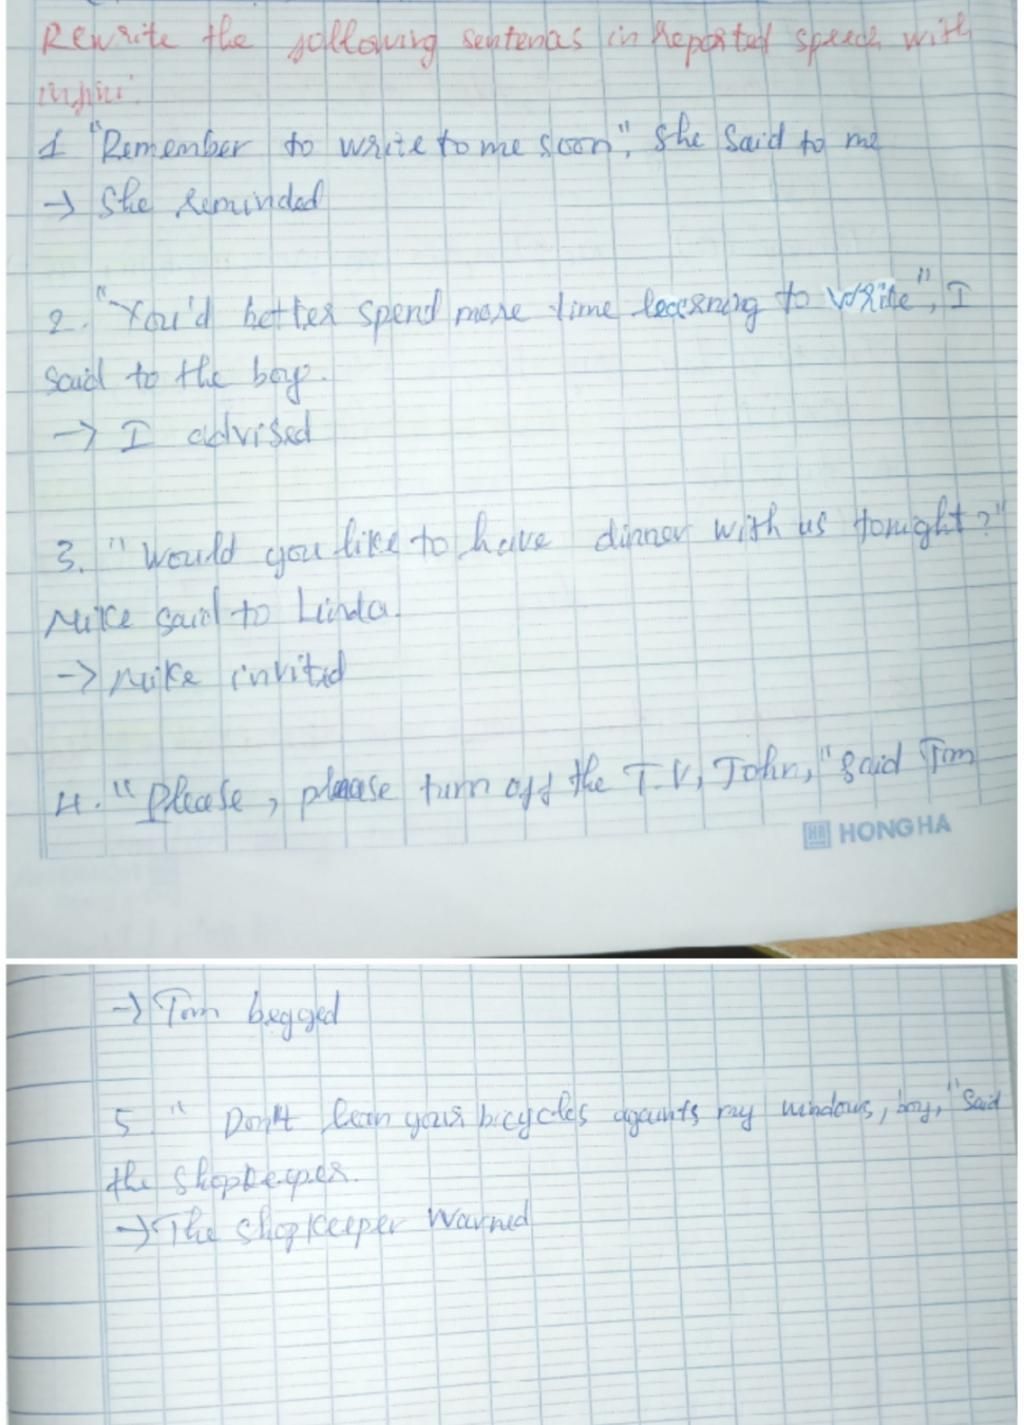 Rewrite the following sentences in Reported speech with
infini
1 "Remember to write to me soon", She Said to me
→ She reminded
2. "You'd better spend more time learning to write", I
said to the boy.
→ I advised
3. "Would you like to have dinner with us tonight?"
Mike said to Linda.
→ Mike invited
4. "Please, please turn off the T.V, John," Said Tom
HONG HA
→ Tom begged
5 " Don't lean your bicycles againts my windows, boy," Said
the Shopkeeper.
→ The shopkeeper warned